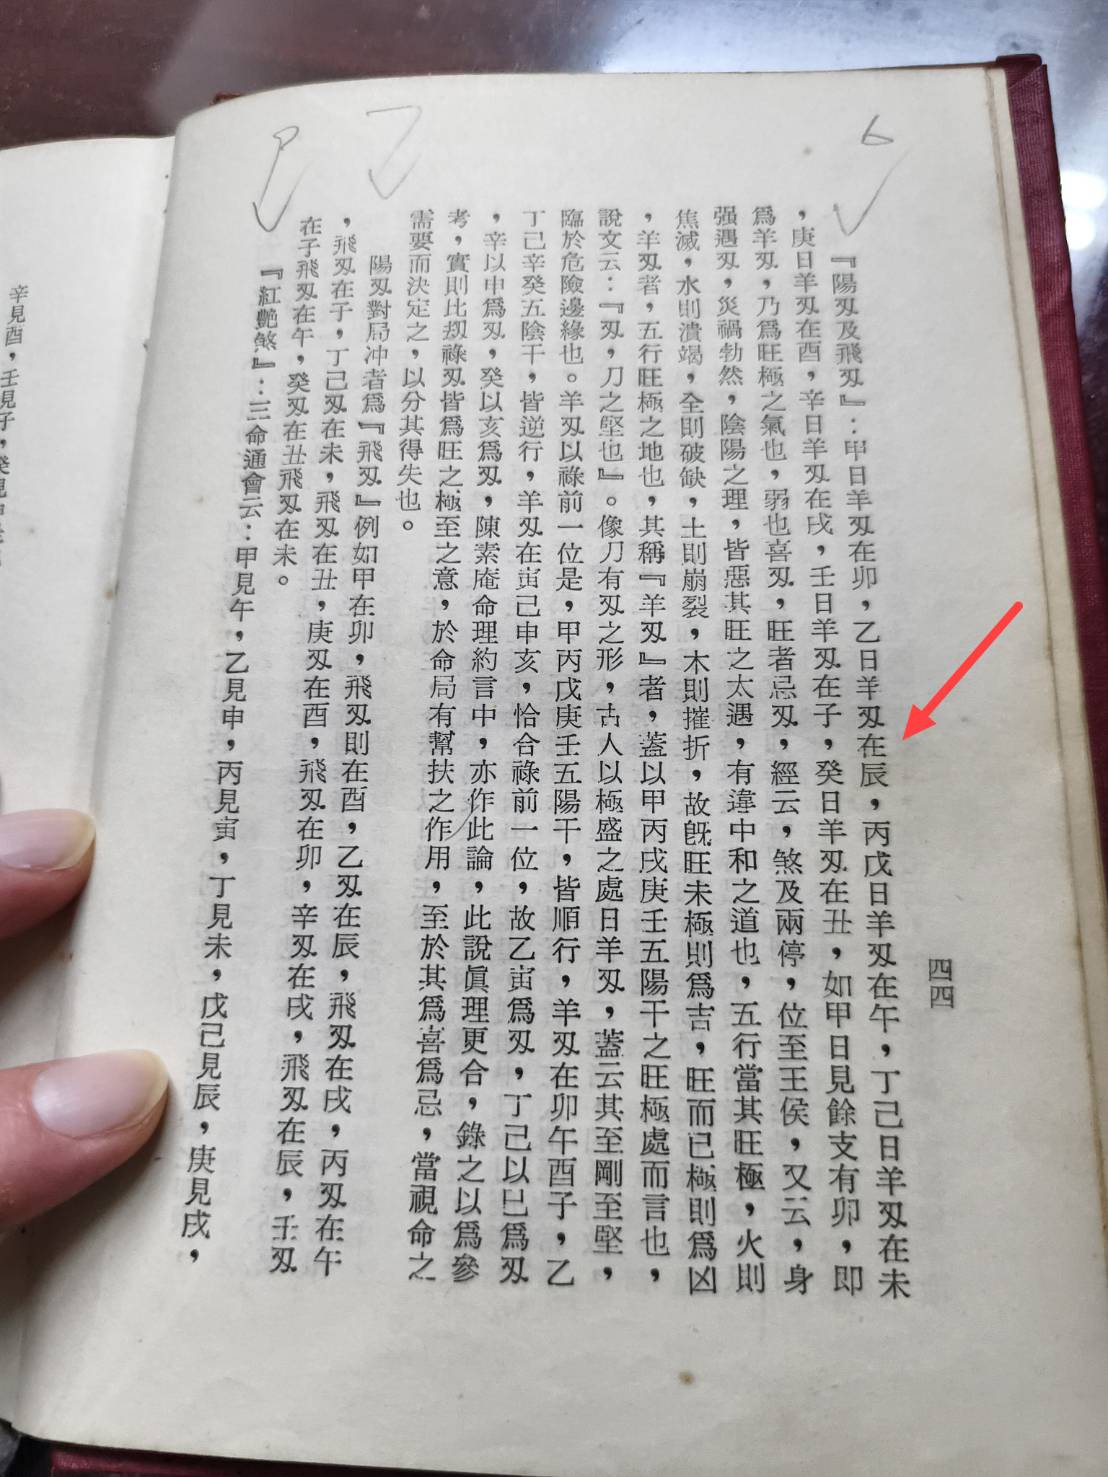 四四
『陽刄及飛刄』：甲日羊刄在卯，乙日羊刄在辰，丙戊日羊刄在午，丁己日羊刄在未
，庚日羊刄在酉，辛日羊刄在戌，壬日羊刄在子，癸日羊刄在丑，如甲日見餘支有卯，即
爲羊刄，乃爲旺極之氣也，弱也喜刄，旺者忌刄，經云，煞及兩停，位至王侯，又云，身
强遇刄，災禍勃然，陰陽之理，皆惡其旺之太過，有違中和之道也，五行當其旺極，火則
焦滅，水則潰竭，金則破缺，土則崩裂，木則摧折，故旣旺未極則爲吉，旺而已極則爲凶
，羊刄者，五行旺極之地也，其稱『羊刄』者，蓋以甲丙戌庚壬五陽干之旺極處而言也，
說文云：『刄，刀之堅也』。像刀有刄之形，古人以極盛之處日羊刄，蓋云其至剛至堅，
臨於危險邊緣也。羊刄以祿前一位是，甲丙戊庚壬五陽干，皆順行，羊刄在卯午酉子，乙
丁己辛癸五陰干，皆逆行，羊刄在寅己申亥，恰合祿前一位，故乙寅爲刄，丁己以巳爲刄
，辛以申爲刄，癸以亥爲刄，陳素庵命理約言中，亦作此論，此說眞理更合，錄之以爲參
考，實則比刼祿刄皆爲旺之極至之意，於命局有幫扶之作用，至於其爲喜爲忌，當視命之
需要而決定之，以分其得失也。
陽刄對局冲者爲『飛刄』例如甲在卯，飛刄則在酉，乙刄在辰，飛刄在戌，丙刄在午
，飛刄在子，丁己刄在未，飛刄在丑，庚刄在酉，飛刄在卯，辛刄在戌，飛刄在辰，壬刄
在子飛刄在午，癸刄在丑飛刄在未。
『紅艷煞』：三命通會云：甲見午，乙見申，丙見寅，丁見未，戊己見辰，庚見戌，
辛見酉，壬見子，